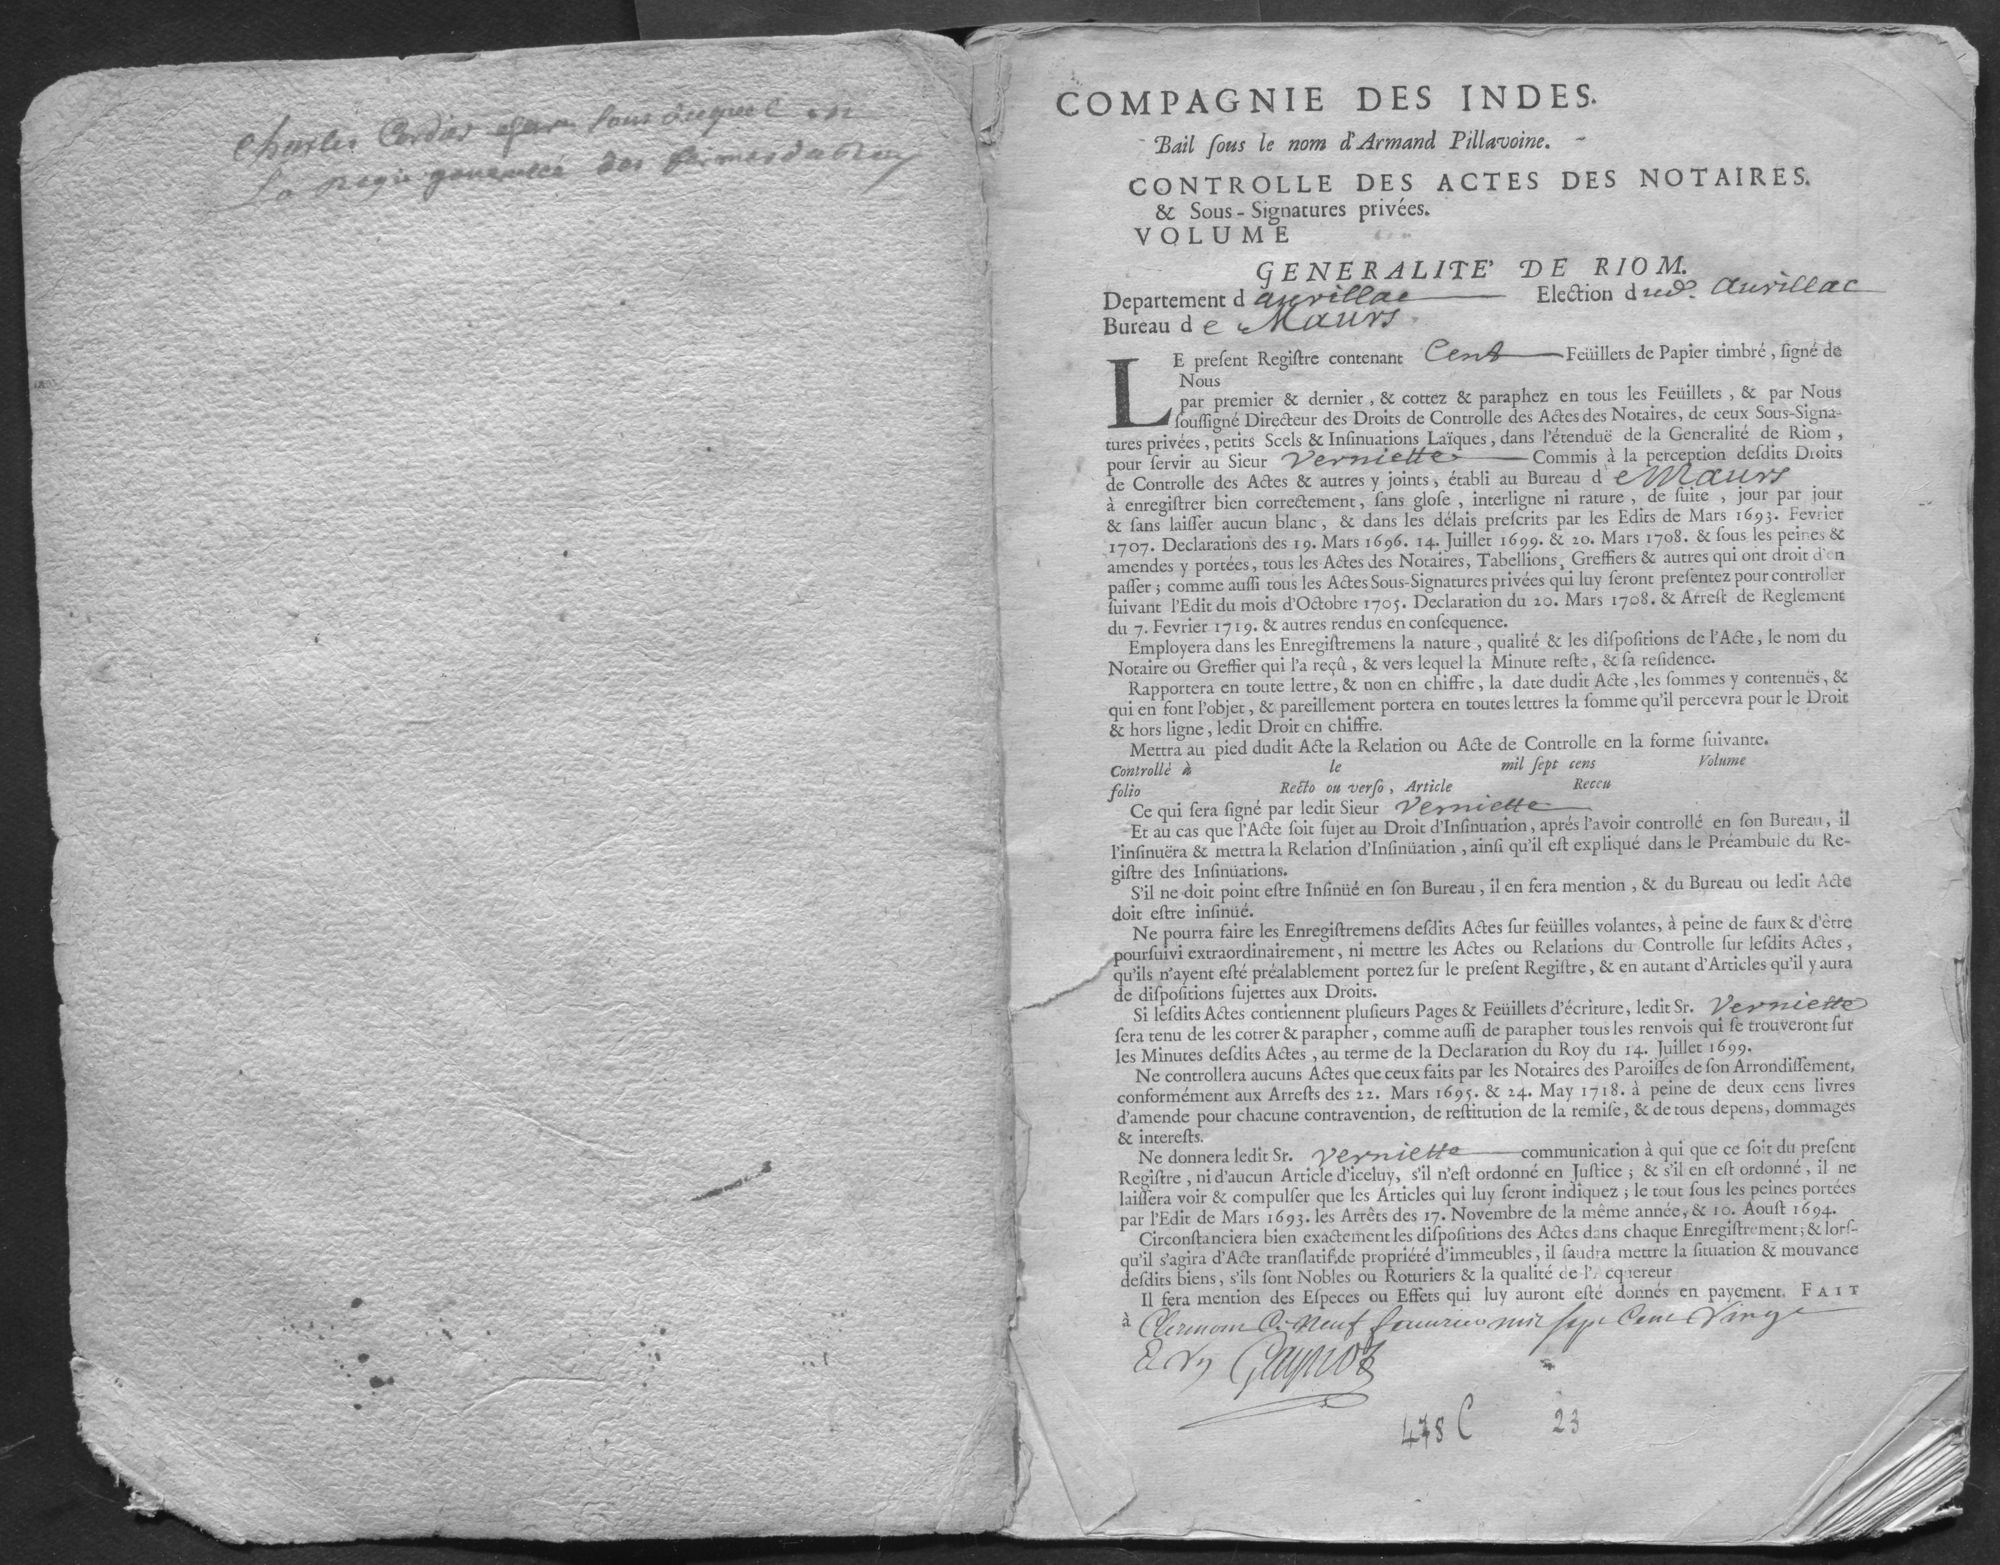 Charles Cordier
La regie generalle des fermes du Roy
COMPAGNIE DES INDES.
Bail ſous le nom d'Armand Pillavoine.
CONTROLLE DES ACTES DES NOTAIRES.
& Sous-Signatures privées.
VOLUME
GENERALITE' DE RIOM.
Departement d aurillac Election dud. Aurillac
Bureau d e Maurs
LE preſent Regiſtre contenant Cent Feüillets de Papier timbré, ſigné de
Nous
par premier & dernier, & cottez & paraphez en tous les Feüillets, & par Nous
ſouſſigné Directeur des Droits de Controlle des Actes des Notaires, de ceux Sous-Signa-
tures privées, petits Scels & Inſinuations Laïques, dans l'étenduë de la Generalité de Riom,
pour ſervir au Sieur Verniette Commis à la perception deſdits Droits
de Controlle des Actes & autres y joints, établi au Bureau d e Maurs
à enregiſtrer bien correctement, ſans gloſe, interligne ni rature, de ſuite, jour par jour
& ſans laiſſer aucun blanc, & dans les délais preſcrits par les Edits de Mars 1693. Fevrier
1707. Declarations des 19. Mars 1696. 14. Juillet 1699. & 20. Mars 1708. & ſous les peines &
amendes y portées, tous les Actes des Notaires, Tabellions, Greffiers & autres qui ont droit d'en
paſſer; comme auſſi tous les Actes Sous-Signatures privées qui luy ſeront preſentez pour controller
ſuivant l'Edit du mois d'Octobre 1705. Declaration du 20. Mars 1708. & Arreſt de Reglement
du 7. Fevrier 1719. & autres rendus en conſequence.
Employera dans les Enregiſtremens la nature, qualité & les diſpoſitions de l'Acte, le nom du
Notaire ou Greffier qui l'a reçû, & vers lequel la Minute reſte, & ſa reſidence.
Rapportera en toute lettre, & non en chiffre, la date dudit Acte, les ſommes y contenuës, &
qui en font l'objet, & pareillement portera en toutes lettres la ſomme qu'il percevra pour le Droit
& hors ligne, ledit Droit en chiffre.
Mettra au pied dudit Acte la Relation ou Acte de Controlle en la forme ſuivante.
Controllé à le mil ſept cens Volume
folio Recto ou verſo, Article Receu
Ce qui ſera ſigné par ledit Sieur Verniette
Et au cas que l'Acte ſoit ſujet au Droit d'Inſinuation, aprés l'avoir controllé en ſon Bureau, il
l'inſinuëra & mettra la Relation d'Inſinüation, ainſi qu'il eſt expliqué dans le Préambule du Re-
giſtre des Inſinüations.
S'il ne doit point eſtre Inſinüé en ſon Bureau, il en ſera mention, & du Bureau ou ledit Acte
doit eſtre inſinüé.
Ne pourra faire les Enregiſtremens deſdits Actes ſur feüilles volantes, à peine de faux & d'être
pourſuivi extraordinairement, ni mettre les Actes ou Relations du Controlle ſur leſdits Actes,
qu'ils n'ayent eſté préalablement portez ſur le preſent Regiſtre, & en autant d'Articles qu'il y aura
de diſpoſitions ſujettes aux Droits.
Si leſdits Actes contiennent pluſieurs Pages & Feüillets d'écriture, ledit Sr. Verniette
ſera tenu de les cotter & parapher, comme auſſi de parapher tous les renvois qui ſe trouveront ſur
les Minutes deſdits Actes, au terme de la Declaration du Roy du 14. Juillet 1699.
Ne controllera aucuns Actes que ceux faits par les Notaires des Paroiſſes de ſon Arrondiſſement,
conformément aux Arreſts des 22. Mars 1695. & 24. May 1718. à peine de deux cens livres
d'amende pour chacune contravention, de reſtitution de la remiſe, & de tous depens, dommages
& intereſts.
Ne donnera ledit Sr. Verniette communication à qui que ce ſoit du preſent
Regiſtre, ni d'aucun Article d'iceluy, s'il n'eſt ordonné en Juſtice; & s'il en eſt ordonné, il ne
laiſſera voir & compulſer que les Articles qui luy ſeront indiquez; le tout ſous les peines portées
par l'Edit de Mars 1693. les Arrêts des 17. Novembre de la même année, & 10. Aouſt 1694.
Circonſtanciera bien exactement les diſpoſitions des Actes dans chaque Enregiſtrement; & lorſ-
qu'il s'agira d'Acte tranſlatif de propriété d'immeubles, il faudra mettre la ſituation & mouvance
deſdits biens, s'ils ſont Nobles ou Roturiers & la qualité de l'Acquereur
Il fera mention des Eſpeces ou Effets qui luy auront eſté donnés en payement. FAIT
à Clermont Ce Neuf Feuvrier mil ſept Cent Vingt
Et Vn
478 C 23